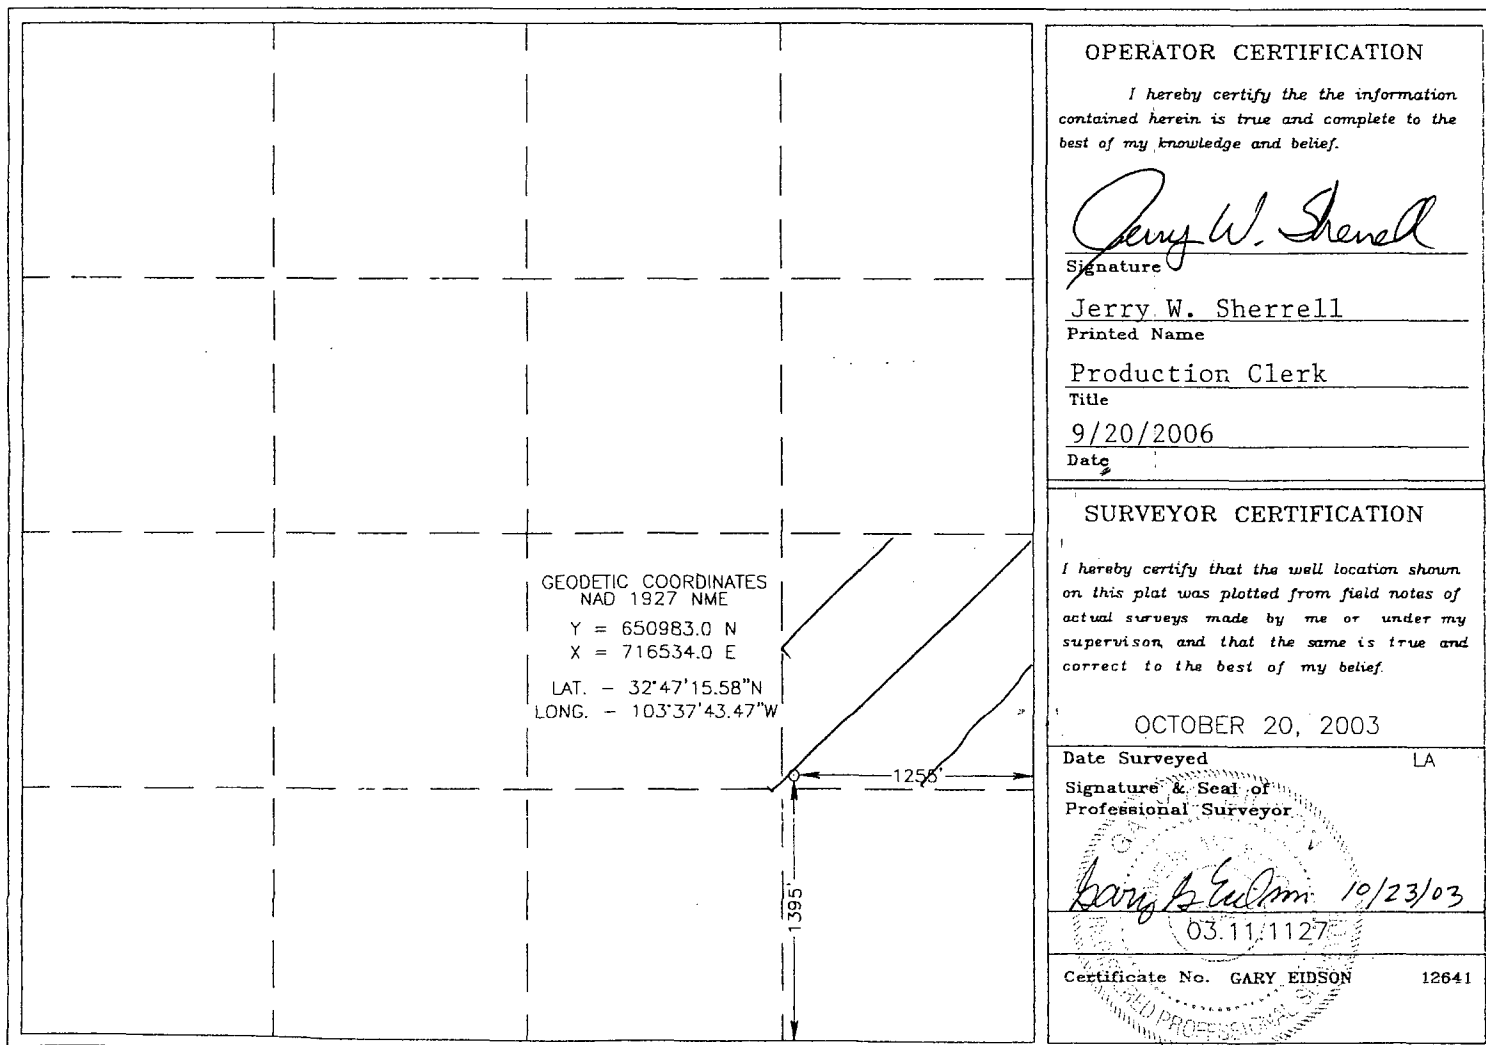 GEODETIC COORDINATES
NAD 1927 NME
Y = 650983.0 N
X = 716534.0 E
LAT. - 32°47'15.58"N
LONG. - 103°37'43.47"W
1255'
1395'
OPERATOR CERTIFICATION
I hereby certify the the information
contained herein is true and complete to the
best of my knowledge and belief.
Jerry W. Sherrell
Signature
Jerry W. Sherrell
Printed Name
Production Clerk
Title
9/20/2006
Date
SURVEYOR CERTIFICATION
I hereby certify that the well location shown
on this plat was plotted from field notes of
actual surveys made by me or under my
supervison, and that the same is true and
correct to the best of my belief.
OCTOBER 20, 2003
Date Surveyed LA
Signature & Seal of
Professional Surveyor
Gary G Eidson 10/23/03
03.11.1127
Certificate No. GARY EIDSON 12641
PROFESSIONAL